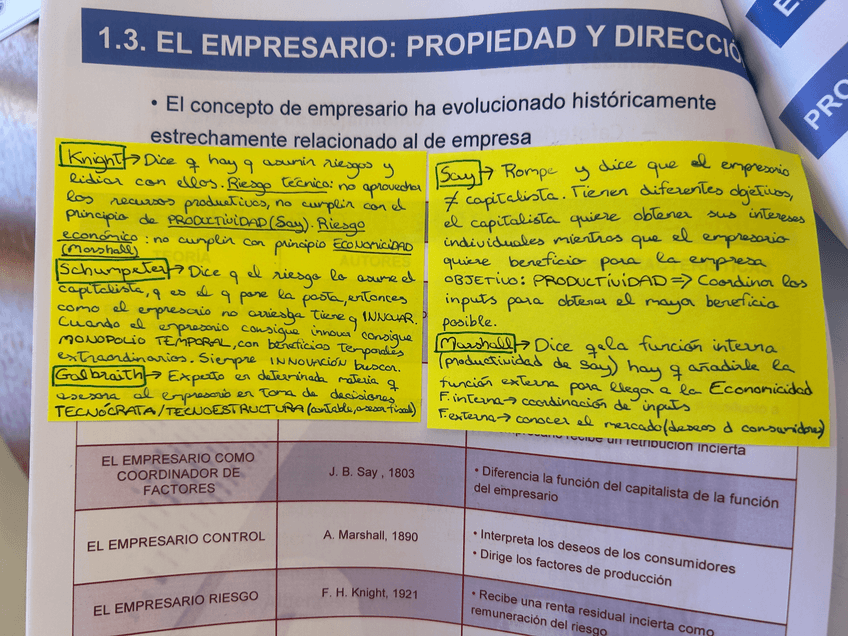 1.3. EL EMPRESARIO: PROPIEDAD Y DIRECCIÓ
PRO
• El concepto de empresario ha evolucionado históricamente
estrechamente relacionado al de empresa
Knight → Dice q hay q asumir riesgos y
lidiar con ellos. Riesgo técnico: no aprovechar
los recursos productivos, no cumplir con el
principio de PRODUCTIVIDAD (Say). Riesgo
económico: no cumplir con principio ECONOMICIDAD
(Marshall)
Schumpeter → Dice q el riesgo lo asume el
capitalista, q es el q pone la pasta, entonces
como el empresario no arriesga tiene q INNOVAR.
Cuando el empresario consigue innovar consigue
MONOPOLIO TEMPORAL, con beneficios temporales
extraordinarios. Siempre INNOVACIÓN buscar.
Galbraith → Experto en determinada materia q
asesora al empresario en toma de decisiones
TECNÓCRATA/TECNOESTRUCTURA (contable, asesor fiscal)
Say → Rompe y dice que el empresario
≠ capitalista. Tienen diferentes objetivos,
el capitalista quiere obtener sus intereses
individuales mientras que el empresario
quiere beneficio para la empresa
OBJETIVO: PRODUCTIVIDAD ⇒ Coordinar los
inputs para obtener el mayor beneficio
posible.
Marshall → Dice q la función interna
(productividad de Say) hay q añadirle la
función externa para llegar a la Economicidad
F. interna → coordinación de inputs
F. externa → conocer el mercado (deseos d consumidores)
empresario recibe un retribución incierta
EL EMPRESARIO COMO
COORDINADOR DE
FACTORES
J. B. Say , 1803
• Diferencia la función del capitalista de la función
del empresario
EL EMPRESARIO CONTROL
A. Marshall, 1890
• Interpreta los deseos de los consumidores
• Dirige los factores de producción
EL EMPRESARIO RIESGO
F. H. Knight, 1921
• Recibe una renta residual incierta como
remuneración del riesgo